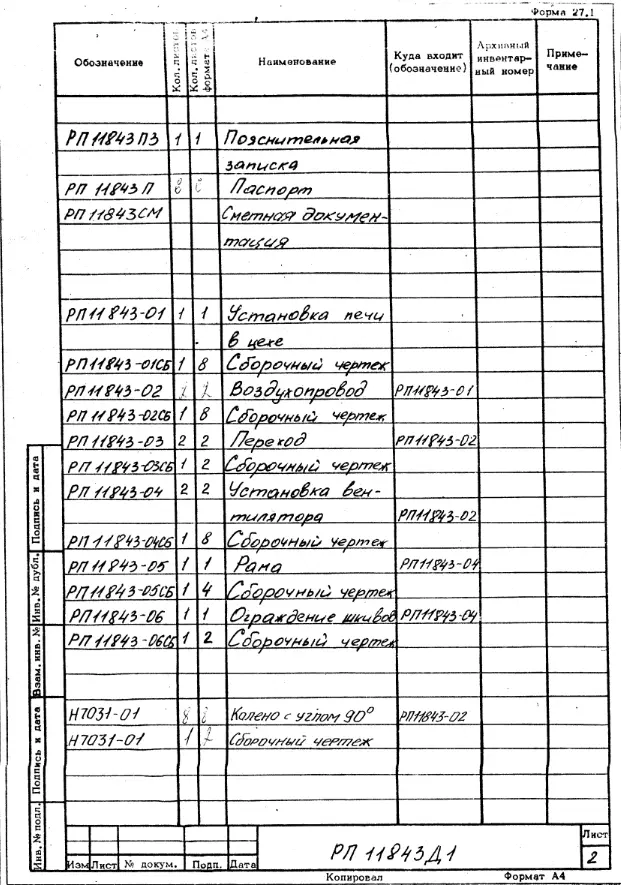 Форма 27.1
Обозначение Кол. листов Кол. листов формата А4 Наименование Куда входит (обозначение) Архивный инвентарный номер Примечание
РП 11843 ПЗ 1 1 Пояснительная
записка
РП 11843 П Паспорт
РП 11843СМ Сметная докумен-
тация
РП 11843-01 1 1 Установка печи
в цехе
РП11843-01СБ 1 8 Сборочный чертеж
РП11843-02 Воздухопровод РП11843-01
РП 11843-02СБ 1 8 Сборочный чертеж
РП 11843-03 2 2 Переход РП11843-02
РП 11843-03СБ 1 2 Сборочный чертеж
РП 11843-04 2 2 Установка вен-
тилятора РП11843-02
РП 11843-04СБ 1 8 Сборочный чертеж
РП 11843-05 1 1 Рама РП11843-04
РП 11843-05СБ 1 4 Сборочный чертеж
РП11843-06 1 1 Ограждение шкивов РП11843-04
РП 11843-06СБ 1 2 Сборочный чертеж
Н7031-01 Колено с углом 90° РП11843-02
Н7031-01 1 Сборочный чертеж
Инв. № подл. Подпись и дата Взам. инв. № Инв. № дубл. Подпись и дата
Изм Лист № докум. Подп. Дата
РП 11843Д1
Лист
2
Копировал Формат А4